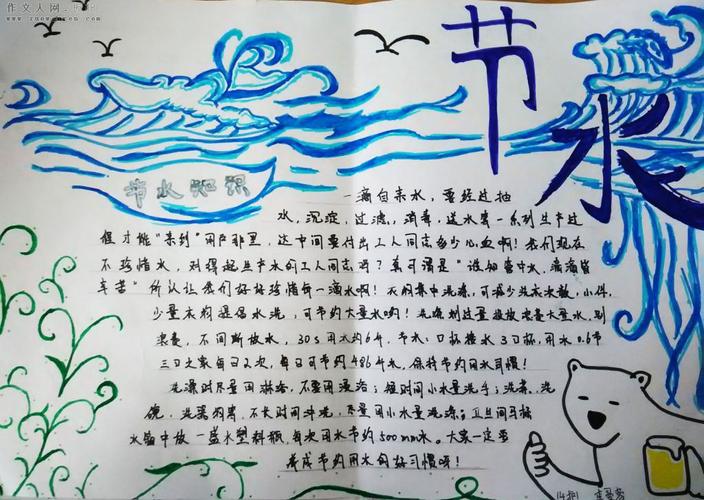 作文人网
节水
节水知识
一滴自来水，要经过抽
水，沉淀，过滤，消毒，送水等一系列生产过
程才能“来到”用户那里，这中间要付出工人同志多少心血啊！我们现在
不珍惜水，对得起生产水的工人同志吗？真可谓是“谁知壶中水，滴滴皆
辛苦”所以让我们好好珍惜每一滴水啊！天的集中洗涤，可减少洗衣次数，小件，
少量衣物提倡水洗，可节约大量水哟！洗涤剂过量投放浪费大量水，别
浪费，不间断放水，30s用水约6升，节水：口杯接水3口杯，用水0.6节
三口之家每日2次，每日可节约486升水，保持节约用水习惯！
洗澡时尽量用淋浴，不要用漫浴；短时间小水量洗手；洗菜、洗
碗，洗不长时间冲洗，尽量用小水量洗涤；卫生间马桶
水箱中放一盛水塑料瓶，每次用水节约500mm水。大家一定要
养成节约用水的好习惯呀！